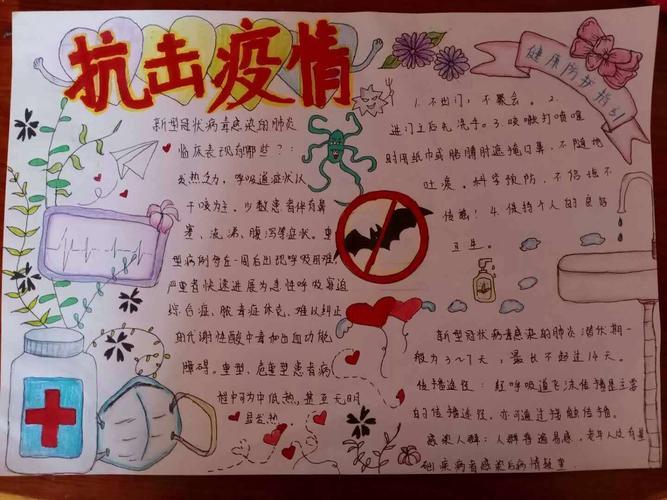 抗击疫情
新型冠状病毒感染的肺炎
临床表现有哪些?:
发热乏力,呼吸道症状以
干咳为主。少数患者伴有鼻
塞、流涕、腹泻等症状。重
型病例多在一周后出现呼吸困难,
严重者快速进展为急性呼吸窘迫
综合症、脓毒症休克、难以纠正
的代谢性酸中毒和出血功能
障碍。重型、危重型患者病
程中可为中低热,甚至无明
显发热
健康防护指引
1.不出门,不聚会。2.
进门之后先洗手。3.咳嗽打喷嚏
时用纸巾或胳膊肘遮掩口鼻,不随地
吐痰。科学预防,不信谣不
传谣!4.保持个人的良好
卫生。
新型冠状病毒感染的肺炎潜伏期一
般为3~7天,最长不超过14天。
传播途径:经呼吸道飞沫传播是主要
的传播途径,亦可通过接触传播。
感染人群:人群普遍易感,老年人及有基
础疾病者感染后病情较重